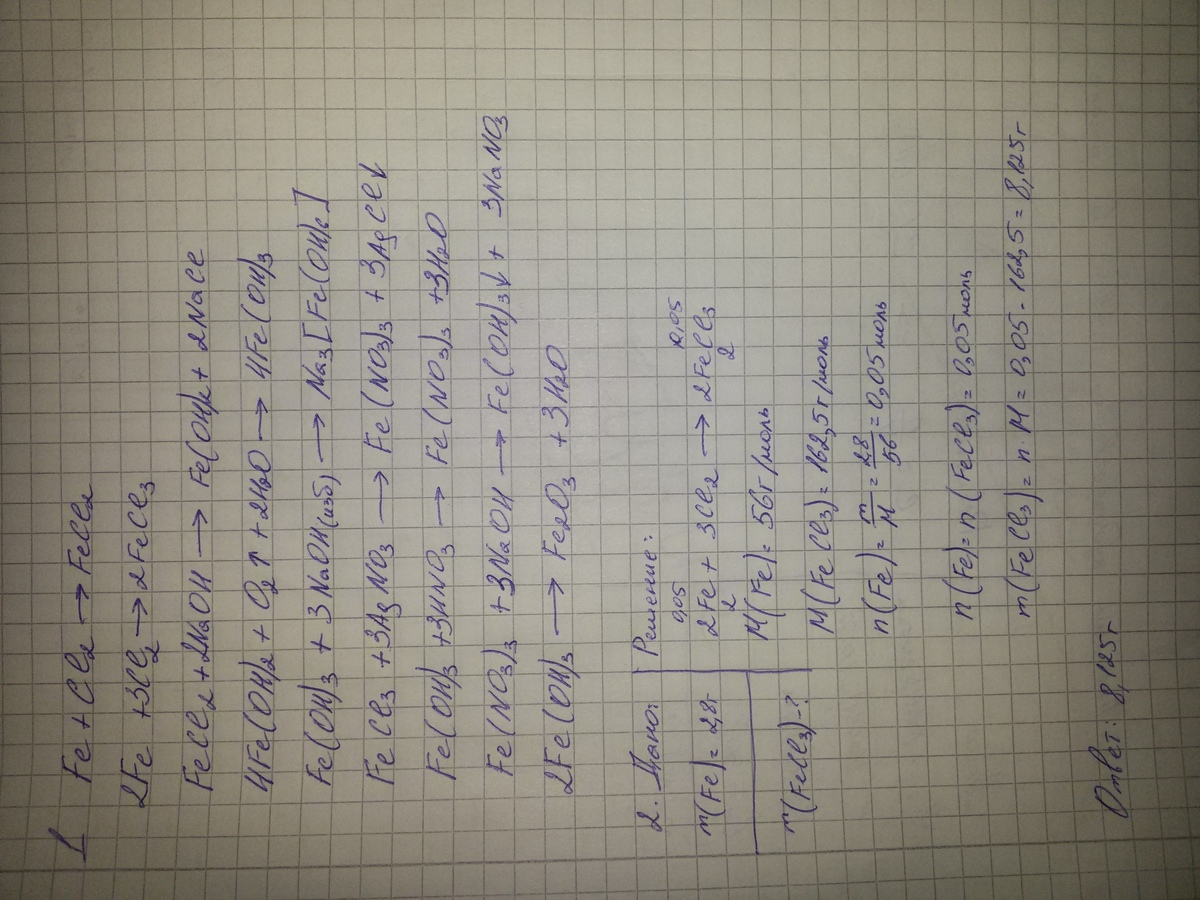 1
Fe + Cl₂ → FeCl₂
2Fe + 3Cl₂ → 2FeCl₃
FeCl₂ + 2NaOH → Fe(OH)₂ + 2NaCl
4Fe(OH)₂ + O₂↑ + 2H₂O → 4Fe(OH)₃
Fe(OH)₃ + 3NaOH(изб) → Na₃[Fe(OH)₆]
FeCl₃ + 3AgNO₃ → Fe(NO₃)₃ + 3AgCl↓
Fe(OH)₃ + 3HNO₃ → Fe(NO₃)₃ + 3H₂O
Fe(NO₃)₃ + 3NaOH → Fe(OH)₃↓ + 3NaNO₃
2Fe(OH)₃ → Fe₂O₃ + 3H₂O
2. Дано: Решение:
0,05 0,05
m(Fe) = 2,8г 2Fe + 3Cl₂ → 2FeCl₃
2 2
M(Fe) = 56г/моль
m(FeCl₃) - ? M(FeCl₃) = 162,5г/моль
n(Fe) = m/M = 2,8/56 = 0,05 моль
n(Fe) = n(FeCl₃) = 0,05 моль
m(FeCl₃) = n · M = 0,05 · 162,5 = 8,125г
Ответ: 8,125г